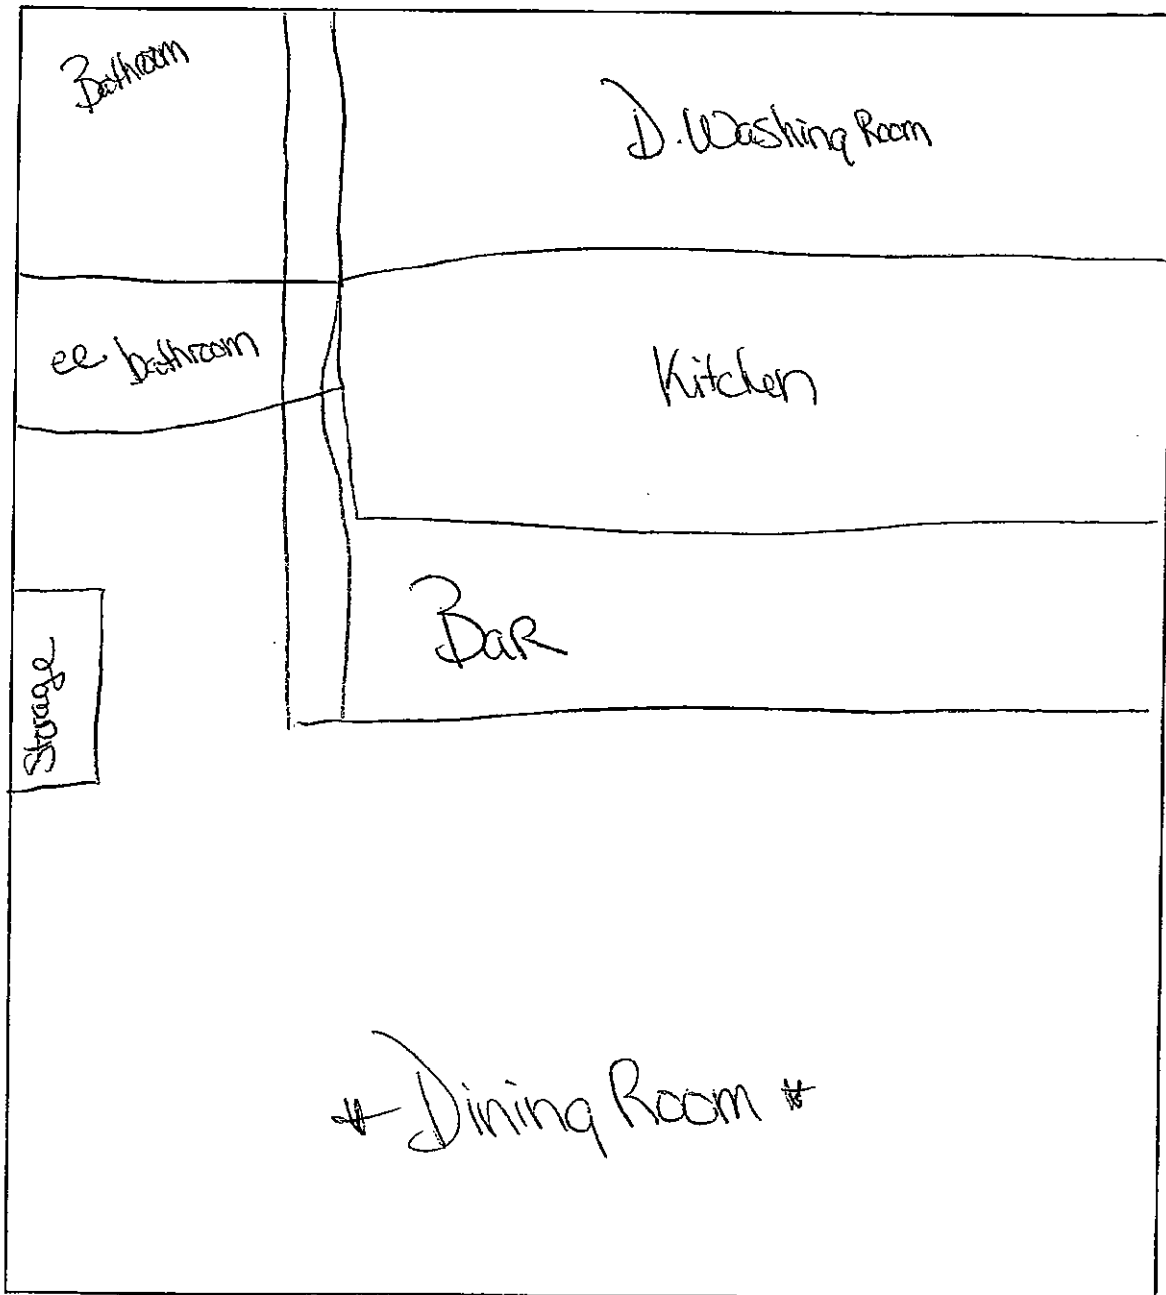 Bathroom
D. Washing Room
ee bathroom
Kitchen
Bar
Storage
* Dining Room *